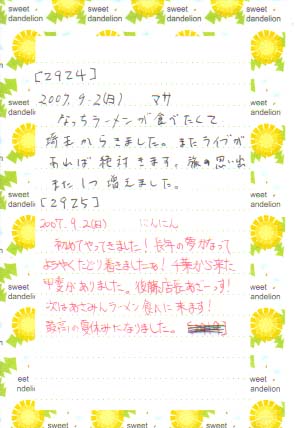 sweet dandelion
[2924]
2007.9.2(日) マサ
なっちラーメンが食べたくて
埼玉からきました。またライブが
あれば絶対きます。旅の思い出
また1つ増えました。
[2925]
2007.9.2(日) にんにん
初めてやってきました!長年の夢かなって
ようやくたどり着きましたね!千葉から来た
甲斐がありました。後藤店長あざーす!
次はあさみんラーメン食べに来ます!
最高の夏休みになりました。